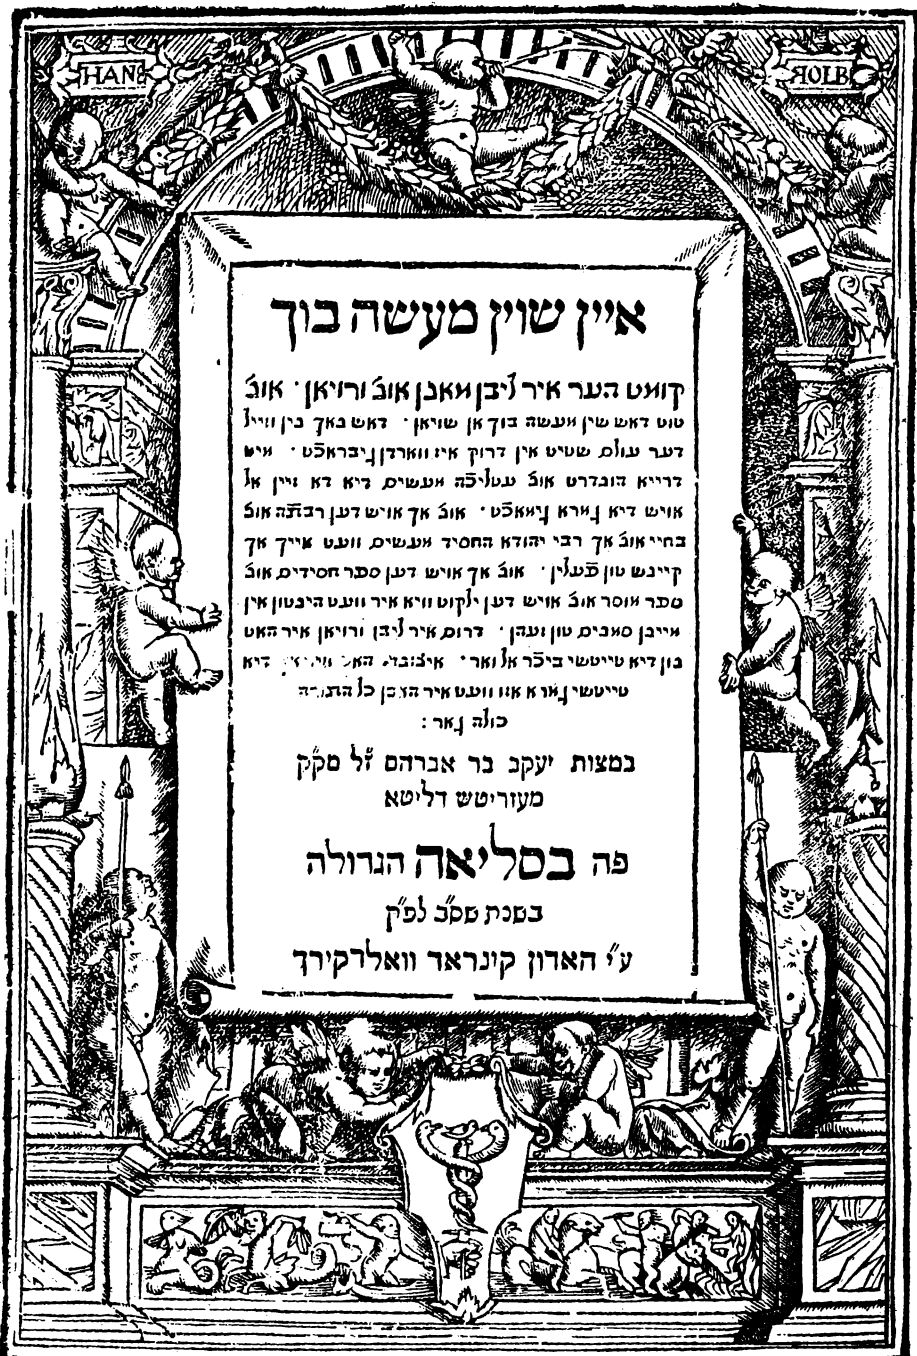 HANS HOLB
איין שוין מעשה בוך
קומט הער איר ליבן מאנן אונ׳ ורויאן ׳ אונ׳
טוט דאש שין מעשה בוך אן שויאן ׳ דאש נאך נין ווייל
דער עולם שטיט אין דרוק איז ווארדן גיבראכֿט ׳ מיט
דרייא הונדרט אונ׳ עטליכֿה מעשים דיא דא זיין אל
אויש דיא גמרא גימאכֿט ׳ אונ׳ אך אויש דען רבתה אונ׳
בחיי אונ׳ אך רבי יהודא החסיד מעשים וועט אייך אך
קיינש טון פֿעלין ׳ אונ׳ אך אויש דען ספר חסידים אונ׳
ספר מוסר אונ׳ אויש דען ילקוט וויא איר וועט הינטון אין
מיינן סמנים טון זעהן ׳ דרום איר ליבן ורויאן איר האט
נון דיא טייטשי ביכֿר אל ואר ׳ איצונדר דיא
טייטשי גמרא אזו וועט איר האבן כל התורה
כולה גאר :
במצות יעקב בר אברהם ז״ל מק״ק
מעזריטש דליטא
פה בסליאה הגדולה
בשנת שס״ב לפ״ק
ע״י האדון קונראד וואלדקירך